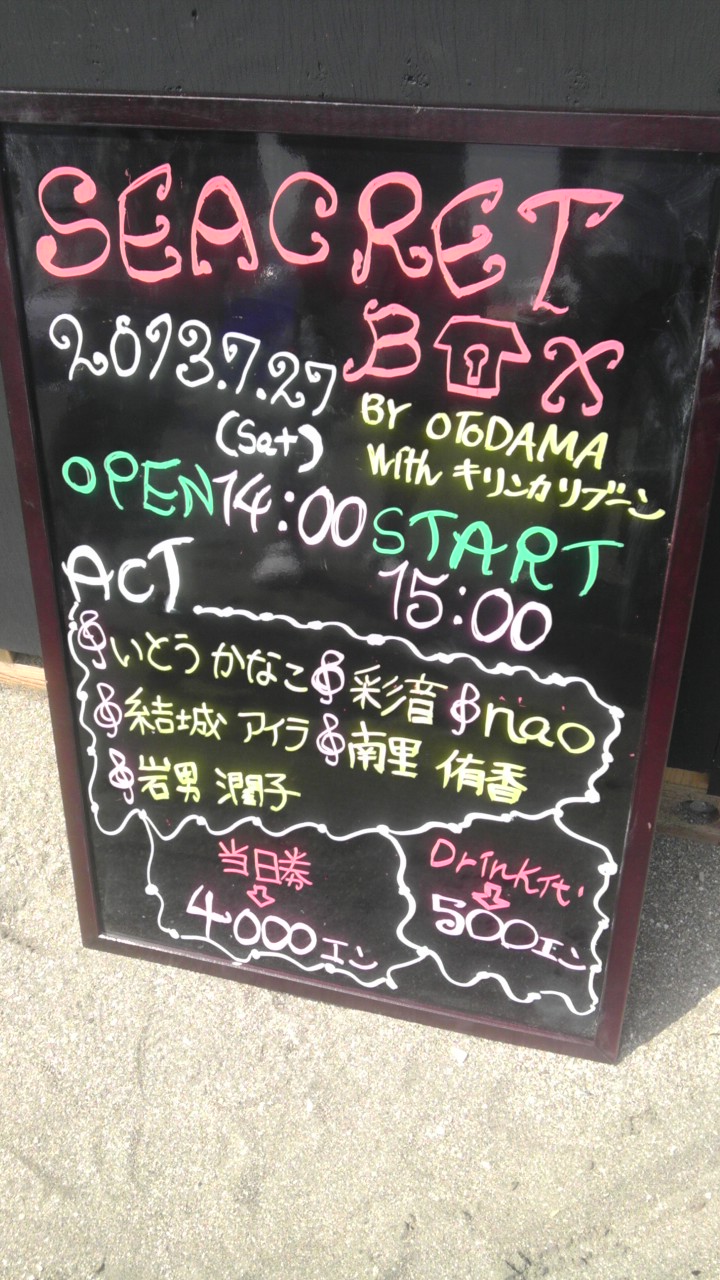 SEACRET
BOX
2013.7.27
(Sat)
BY OTODAMA
With キリンカリブーン
OPEN 14:00 START
15:00
ACT
いとう かなこ 彩音 nao
結城 アイラ 南里 侑香
岩男 潤子
当日券
4000エン
Drink代
500エン